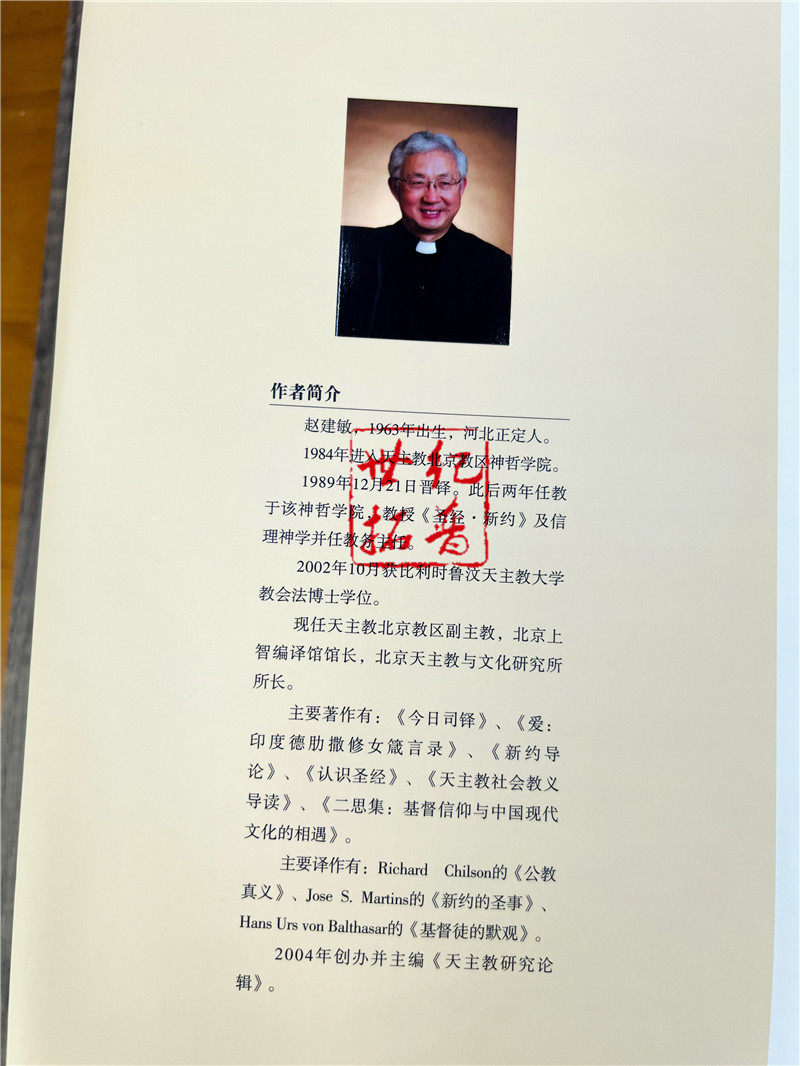 作者简介
赵建敏，1963年出生，河北正定人。
1984年进入天主教北京教区神哲学院。
1989年12月21日晋铎。此后两年任教
于该神哲学院，教授《圣经·新约》及信
理神学并任教务主任。
2002年10月获比利时鲁汶天主教大学
教会法博士学位。
现任天主教北京教区副主教，北京上
智编译馆馆长，北京天主教与文化研究所
所长。
主要著作有：《今日司铎》、《爱：
印度德肋撒修女箴言录》、《新约导
论》、《认识圣经》、《天主教社会教义
导读》、《二思集：基督信仰与中国现代
文化的相遇》。
主要译作有：Richard Chilson的《公教
真义》、Jose S. Martins的《新约的圣事》、
Hans Urs von Balthasar的《基督徒的默观》。
2004年创办并主编《天主教研究论
辑》。
世纪
拓普